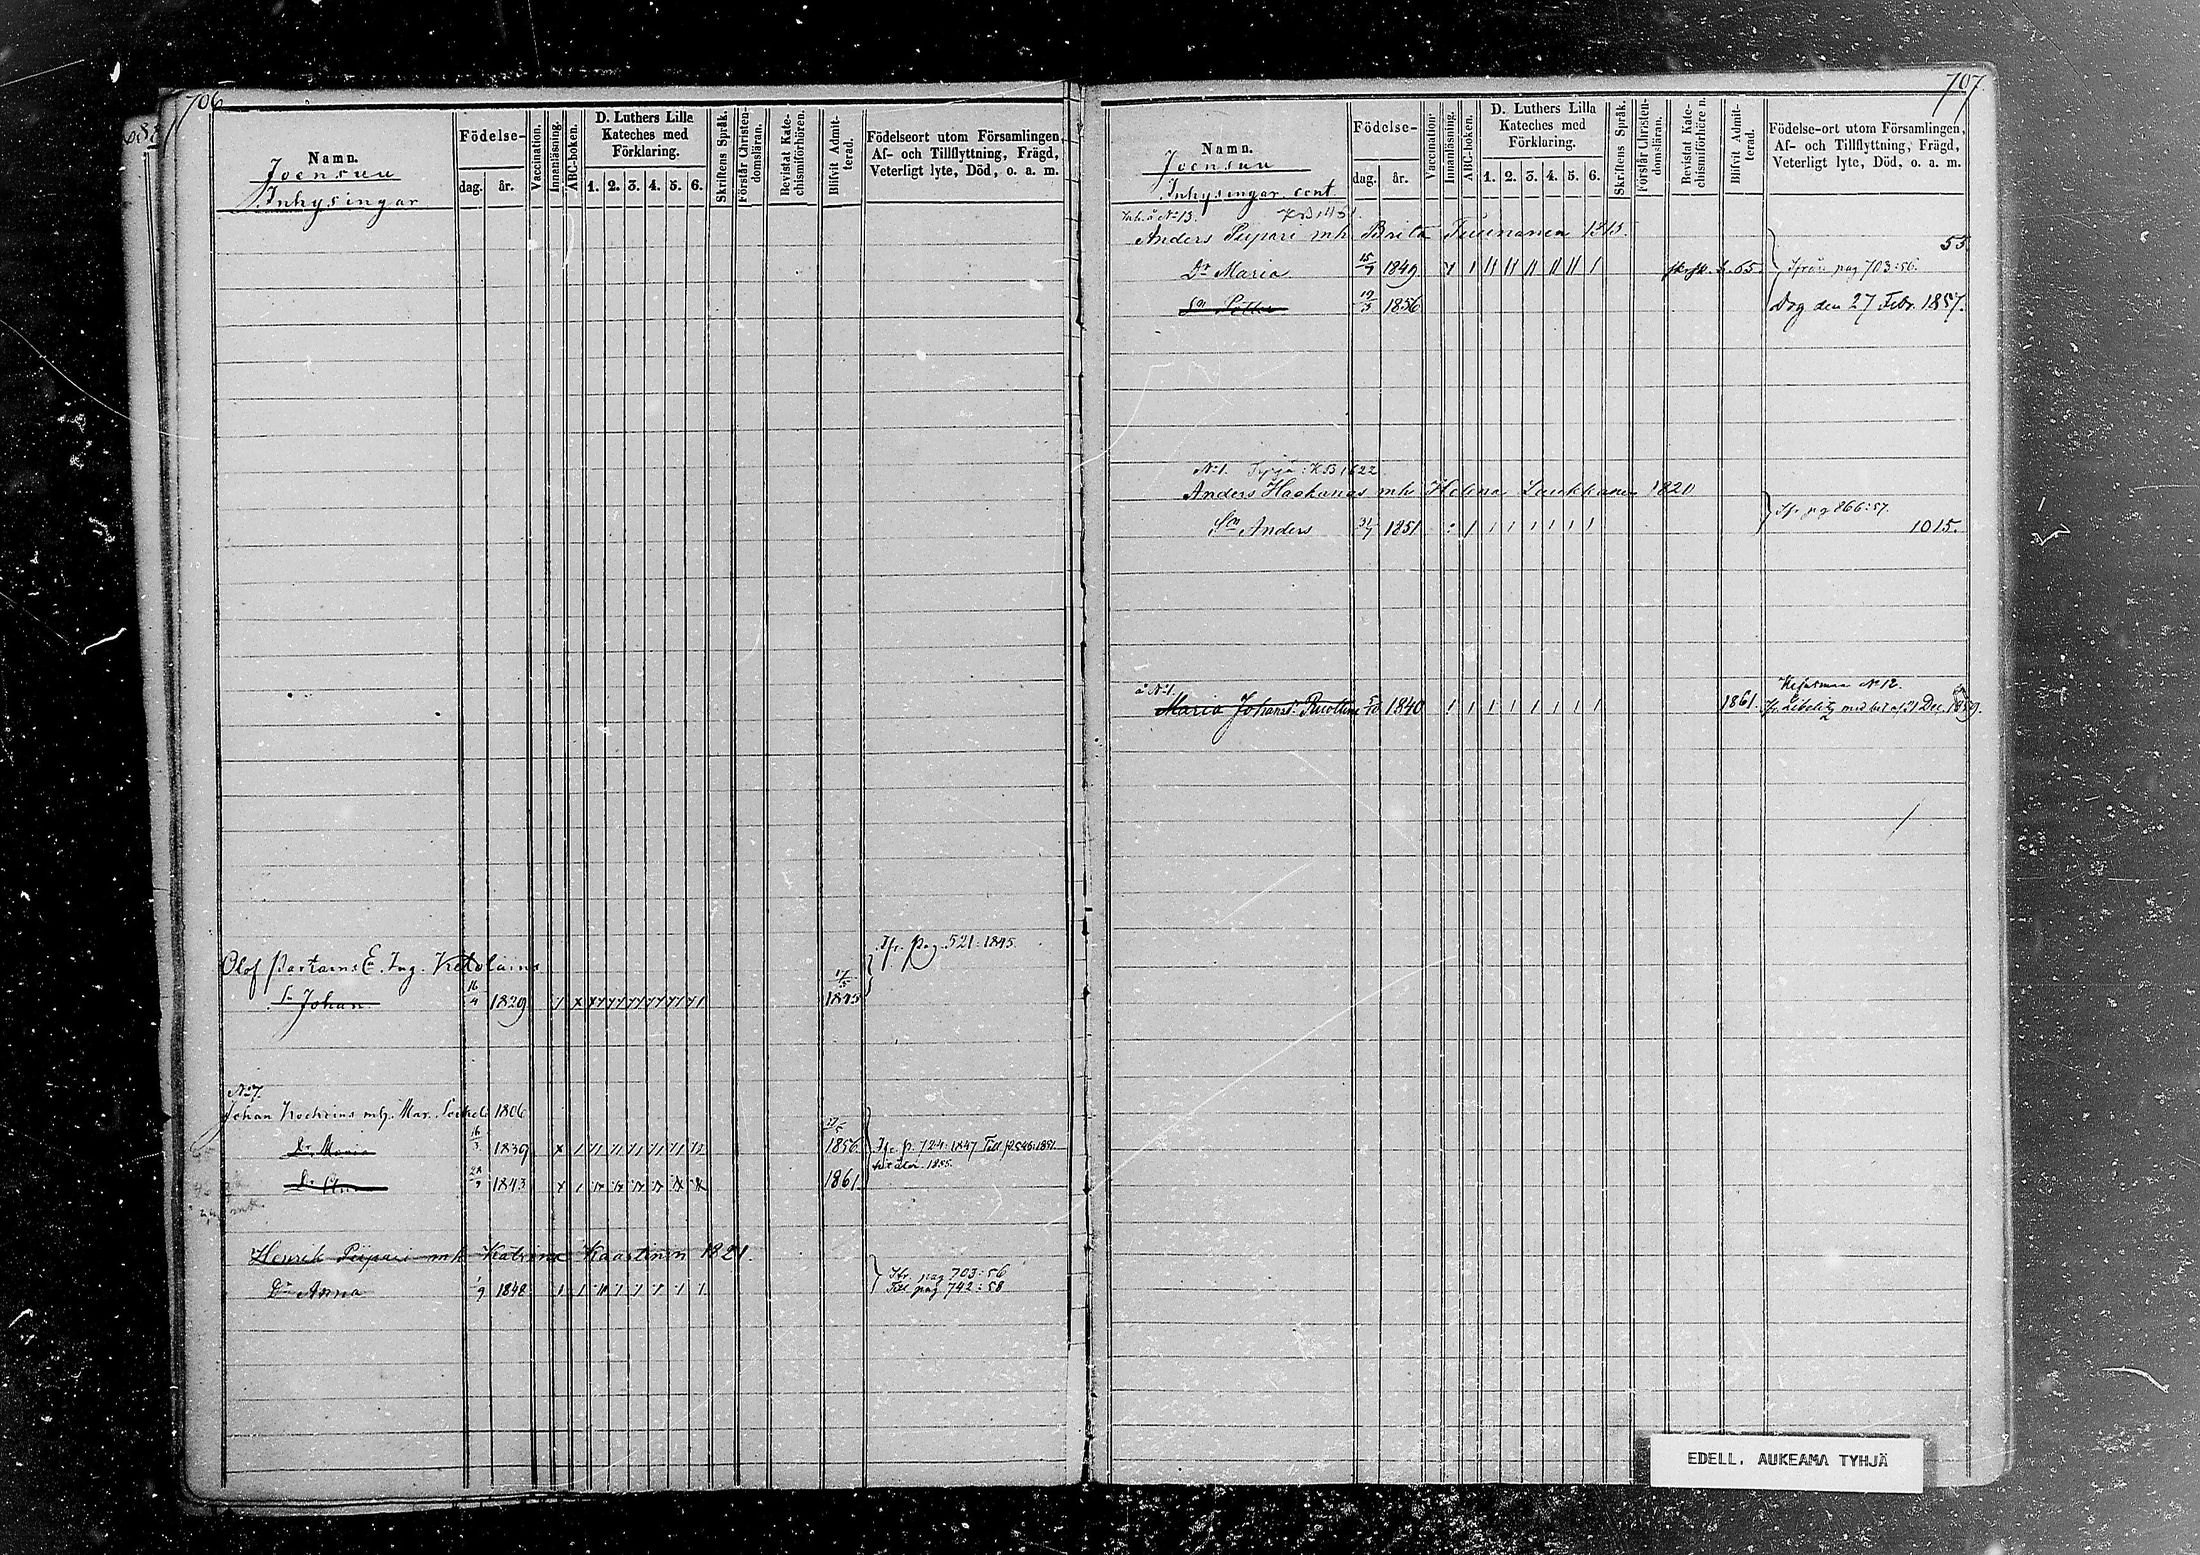 706
Namn.
Joensuu
Inhysingar
Födelse-
dag. år.
Vaccination.
Innanläsning.
ABC-boken.
D. Luthers Lilla
Kateches med
Förklaring.
1. 2. 3. 4. 5. 6.
Skriftens Språk.
Förstår Christen-
domsläran.
Bevistat Kate-
chismiförhören.
Blifvit Admit-
terad.
Födelseort utom Församlingen,
Af- och Tillflyttning, Frägd,
Veterligt lyte, Död, o. a. m.
Ifr. pag. 521. 1845.
Olof Ing.
Sn Johan 16/4 1829 17/5 1845
No 7.
Johan mh. Mar. 1806
Dr Maria 16/3 1839 1856 Ifr. p. 724: 1847
1855.
Dr 28/9 1843 1861
Henrik Piipari mh Katrina Kaartinen 1821.
Dr Anna 1/9 1848
Ifr. pag 703:56
Till pag 742:58
707.
Namn.
Joensuu
Inhysingar cont.
Födelse-
dag. år.
Vaccination.
Innanläsning.
ABC-boken.
D. Luthers Lilla
Kateches med
Förklaring.
1. 2. 3. 4. 5. 6.
Skriftens Språk.
Förstår Christen-
domsläran.
Bevistat Kate-
chismiförhören.
Blifvit Admit-
terad.
Födelse-ort utom Församlingen,
Af- och Tillflyttning, Frägd,
Veterligt lyte, Död, o. a. m.
Inh. å No 13.
Anders Piipari mh. Brita Tuunanen 1815.
53.
Dr Maria 15/7 1849 65. Ifrån pag 703:56.
Sn Petter 19/3 1856 Dog den 27 Febr. 1857.
No 1. KB 1622
Anders Haakanas mh Helena Laukkanen 1821
Ifr. pag 866:57.
Sn Anders 31/7 1851 1015.
å No 1. No 12.
Maria Johansd. 5/10 1840 1861. Ifr. Libelitz med bet. af 31 Dec. 1859.
EDELL. AUKEAMA TYHJÄ